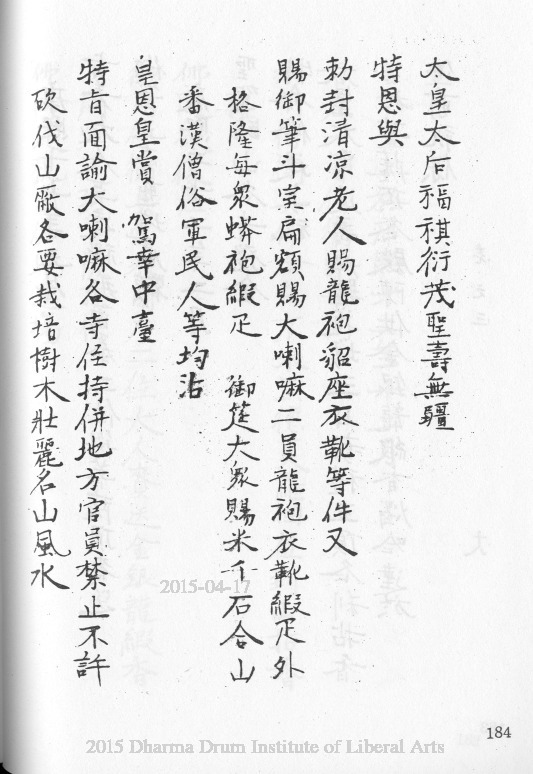 太皇太后福祺衍茂聖壽無疆
特恩與
勅封清凉老人賜龍袍貂座衣靴等件又
賜御筆斗室扁額賜大喇嘛二員龍袍衣靴緞疋外
格隆每眾蟒袍緞疋 御筵大眾賜米千石合山
番漢僧俗軍民人等均沾
皇恩皇賞 駕幸中臺
特肯面諭大喇嘛各寺住持併地方官員禁止不許
砍伐山厰各要栽培樹木壯麗名山風水
184
2015-04-17
2015 Dharma Drum Institute of Liberal Arts